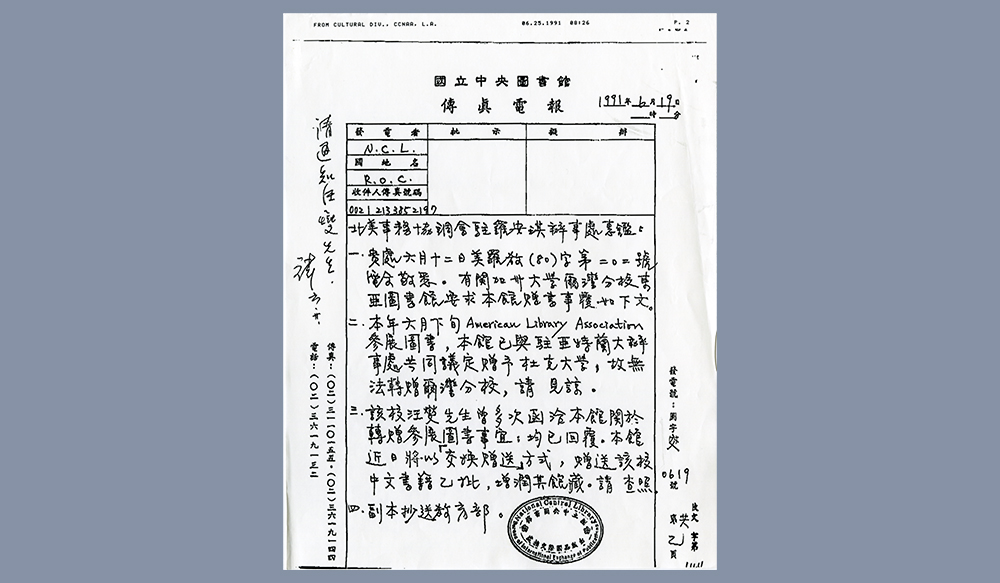 FROM CULTURAL DIV., CCNAA, L.A. 06.25.1991 08:26 P. 2
國立中央圖書館
傳真電報
1991年6月19日
時 分
發電者 批示 擬辦
N.C.L.
國地名
R.O.C.
收件人傳真號碼
002 1 213 385 2197
北美事務協調會駐羅安琪辦事處惠鑒：
一、貴處六月十二日美羅放(80)字第二○二號
函敬悉。有關加州大學爾灣分校東
亞圖書館要求本館贈書事，復如下文。
二、本年六月下旬American Library Association
參展圖書，本館已與駐亞特蘭大辦
事處共同議定贈予杜克大學，故無
法轉贈爾灣分校，請 見諒。
三、該校汪燮先生曾多次函洽本館關於
轉贈參展圖書事宜，均已回復。本館
近日將以「交換贈送」方式，贈送該校
中文書籍乙批，增潤其館藏。請 查照
四、副本抄送教育部。
National Central Library
Bureau of International Exchange of Publications
請通知汪燮先生．
傳真：(○二)三一一○一五五．(○二)三六一九一四四
電話：(○二)三六一九一三二
發電號：
0619
號
共
第乙頁